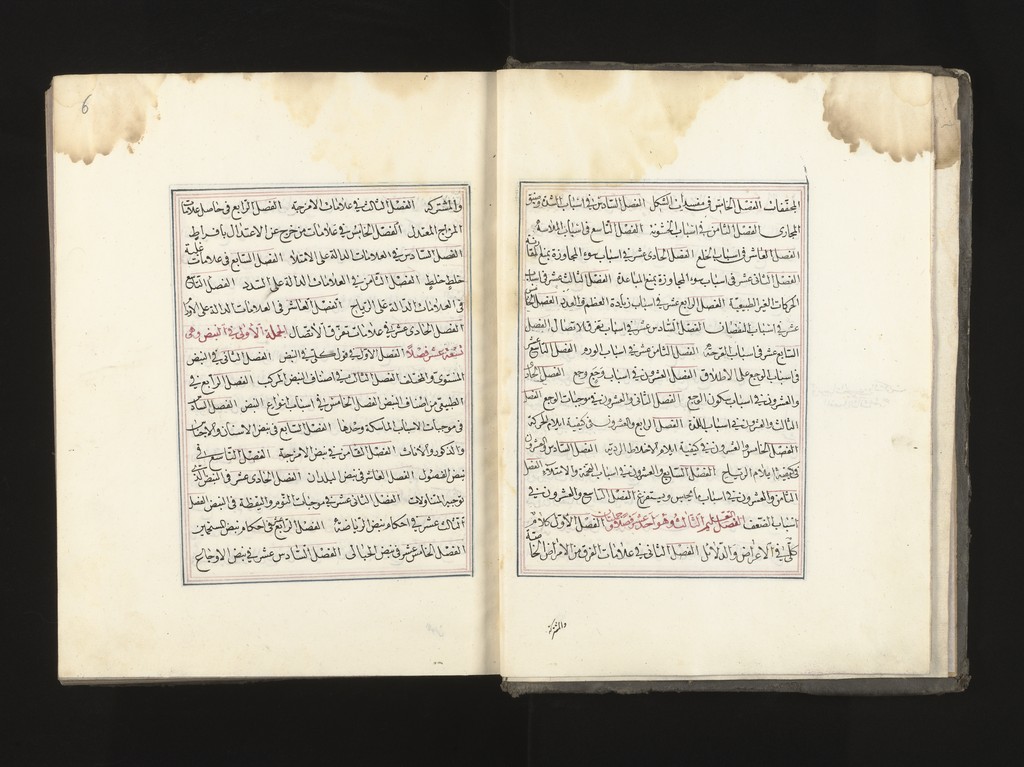 المجففات الفصل الخامس في مفسدات الشكل الفصل السادس في اسباب السدة وضيق
المجارى الفصل الثامن في اسباب الخشونة الفصل التاسع في اسباب الملاسة
الفصل العاشر في اسباب الخلع الفصل الحادى عشر في اسباب سوء المجاورة بمنع المقاربة
الفصل الثانى عشر في اسباب سوء المجاورة بمنع المباعدة الفصل الثالث عشر في اسباب
الحركات الغير الطبيعية الفصل الرابع عشر في اسباب زيادة العظم والعدد الفصل الخامس
عشر في اسباب النقصان الفصل السادس عشر في اسباب تفرق الاتصال الفصل
السابع عشر في اسباب القرحة الفصل الثامن عشر في اسباب الورم الفصل التاسع عشر
في اسباب الوجع على الاطلاق الفصل العشرون في اسباب وجع وجع الفصل الحادى
والعشرون في اسباب سكون الوجع الفصل الثانى والعشرون في موجبات الوجع الفصل
الثالث والعشرون في اسباب اللذة الفصل الرابع والعشرون في كيفية ايلام الحركة
الفصل الخامس والعشرون في كيفية ايلام الاخلاط الردية الفصل السادس والعشرون
في كيفية ايلام الرياح الفصل السابع والعشرون في اسباب التخمة والامتلاء الفصل
الثامن والعشرون في اسباب ما يحتبس ويستفرغ الفصل التاسع والعشرون في
اسباب الضعف التعليم الثالث وهو احد عشر فصلا وجملتان الفصل الاول كلام
كلى في الاعراض والدلائل الفصل الثانى في علامات الفرق بين الامراض الخاصة
والمشتركة
6
والمشتركة الفصل الثالث في علامات الامزجة الفصل الرابع في حاصل علامات
المزاج المعتدل الفصل الخامس في علامات من خرج عن الاعتدال بافراط
الفصل السادس في العلامات الدالة على الامتلاء الفصل السابع في علامات غلبة
خلط خلط الفصل الثامن في العلامات الدالة على السدد الفصل التاسع
في العلامات الدالة على الرياح الفصل العاشر في العلامات الدالة على الاورام
الفصل الحادى عشر في علامات تفرق الاتصال الجملة الاولى في النبض وهى
تسعة عشر فصلا الفصل الاول في قول كلى في النبض الفصل الثانى في النبض
المستوى والمختلف الفصل الثالث في اصناف النبض المركب الفصل الرابع في
الطبيعى من اصناف النبض الفصل الخامس في اسباب انواع النبض الفصل السادس
في موجبات الاسباب الماسكة وحدها الفصل السابع في نبض الاسنان
والذكور والاناث الفصل الثامن في نبض الامزجة الفصل التاسع في
نبض الفصول الفصل العاشر في نبض البلدان الفصل الحادى عشر في النبض الذى
توجبه المتناولات الفصل الثانى عشر في موجبات النوم واليقظة في النبض الفصل
الثالث عشر في احكام نبض الرياضة الفصل الرابع عشر في احكام نبض المستحمين
الفصل الخامس عشر في نبض الحبالى الفصل السادس عشر في نبض الاوجاع